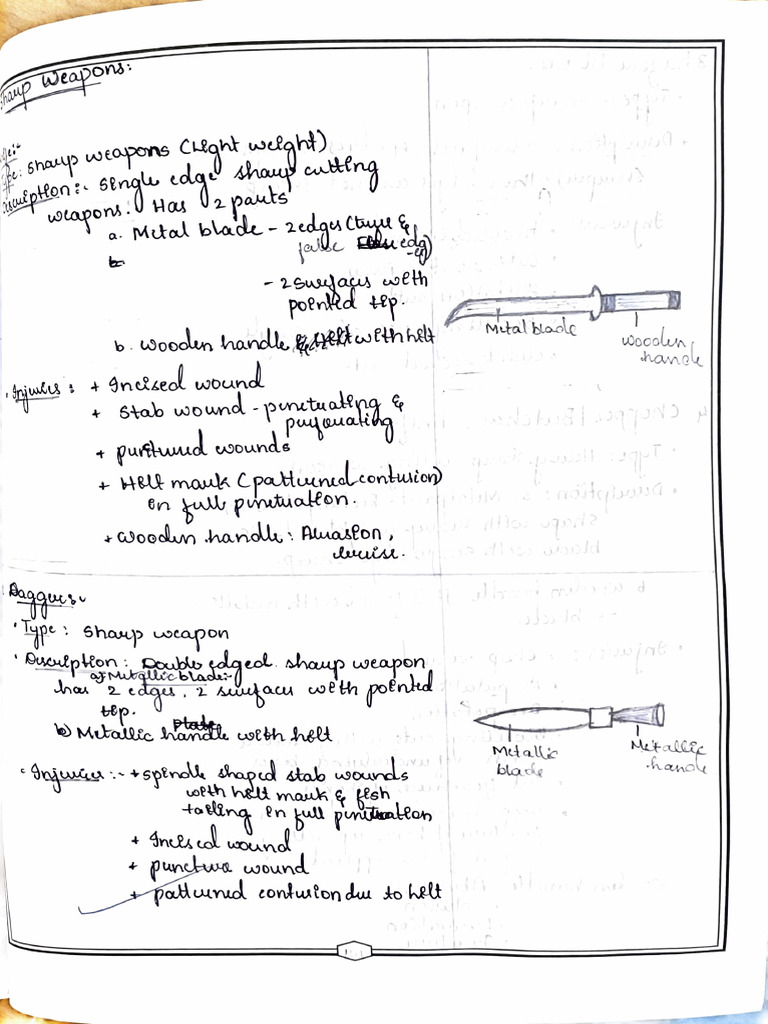 Sharp Weapons:
Type: Sharp weapons (Light weight)
Description:- Single edge sharp cutting
weapons. Has 2 parts
a. Metal blade - 2 edges (true &
false edg
-e)
- 2 surfaces with
pointed tip.
b. wooden handle with hilt
Metal blade
wooden
handle
Injuries: + Incised wound
+ Stab wound - penetrating &
perforating
+ punctured wounds
+ Hilt mark (patterned contusion)
in full penetration.
+ wooden handle: Abrasion,
bruise.
Dagger:-
Type: Sharp weapon
Description: Double edged sharp weapon
a) Metallic blade:-
has 2 edges, 2 surfaces with pointed
tip.
b) Metallic handle with hilt
Metallic
blade
Metallic
handle
Injuries:- + spindle shaped stab wounds
with hilt mark & fish
tailing in full penetration
+ Incised wound
+ puncture wound
+ patterned contusion due to hilt